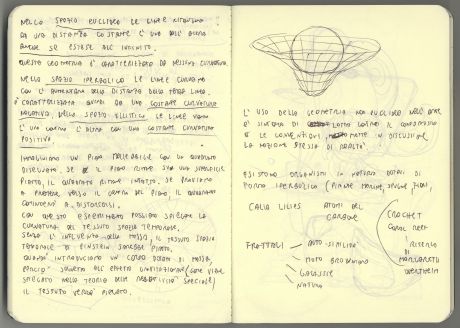 NELLO SPAZIO EUCLIDEO LE LINEE RIMANGONO
AD UNA DISTANZA COSTANTE L'UNA DALL'ALTRA
ANCHE SE ESTESE ALL'INFINITO.
QUESTA GEOMETRIA È CARATTERIZZATA DA NESSUNA CURVATURA.
NELLO SPAZIO IPERBOLICO LE LINEE CURVANO
CON L'AUMENTARE DELLA DISTANZA DELLA LINEA.
È CARATTERIZZATA QUINDI DA UNA COSTANTE CURVATURA
NEGATIVA. NELLO SPAZIO ELLITTICO LE LINEE
L'UNO CONTRO L'ALTRO CON UNA COSTANTE CURVATURA
POSITIVA.
IMMAGINIAMO UN PIANO MALLEABILE CON UN QUADRATO
DISEGNATO. SE IL PIANO RIMANE SU UNA SUPERFICIE
PIATTA, IL QUADRATO RIMANE INTATTO. SE PROVIAMO
A PREMERE VERSO IL CENTRO DEL PIANO, IL QUADRATO
COMINCERÀ A DISTORCERSI.
CON QUESTO ESPERIMENTO POSSIAMO SPIEGARE LA
CURVATURA DEL TESSUTO SPAZIO TEMPORALE.
SENZA L'INFLUENZA DELLA MASSA, IL TESSUTO SPAZIO
TEMPORALE DI EINSTEIN SAREBBE PIATTO.
QUANDO INTRODUCIAMO UN CORPO DOTATO DI MASSA,
PERCIÒ SOGGETTO ALL'EFFETTO GRAVITAZIONALE (COME VIENE
SPIEGATO NELLA TEORIA DELLA RELATIVITÀ SPECIALE)
IL TESSUTO VERRÀ PIEGATO.
L'USO DELLA GEOMETRIA NON EUCLIDEA NELL'ARTE
È SINTOMO DI LOTTA CONTRO IL CONFORMISMO
E LE CONVENZIONI, METTE IN DISCUSSIONE
LA NOZIONE STESSA DI REALTÀ.
ESISTONO ORGANISMI IN NATURA DOTATI DI
FORMA IPERBOLICA (PIANTE MARINE, SPUGNE, FIORI,
CALLA LILIES ATOMI DEL
CARBONE
CROCHET
CORAL REEF
FRATTALI AUTO-SIMILI
MOTO BROWNIANO
GALASSIE
NATURA
DI
MARGARETH
WERTHEIM